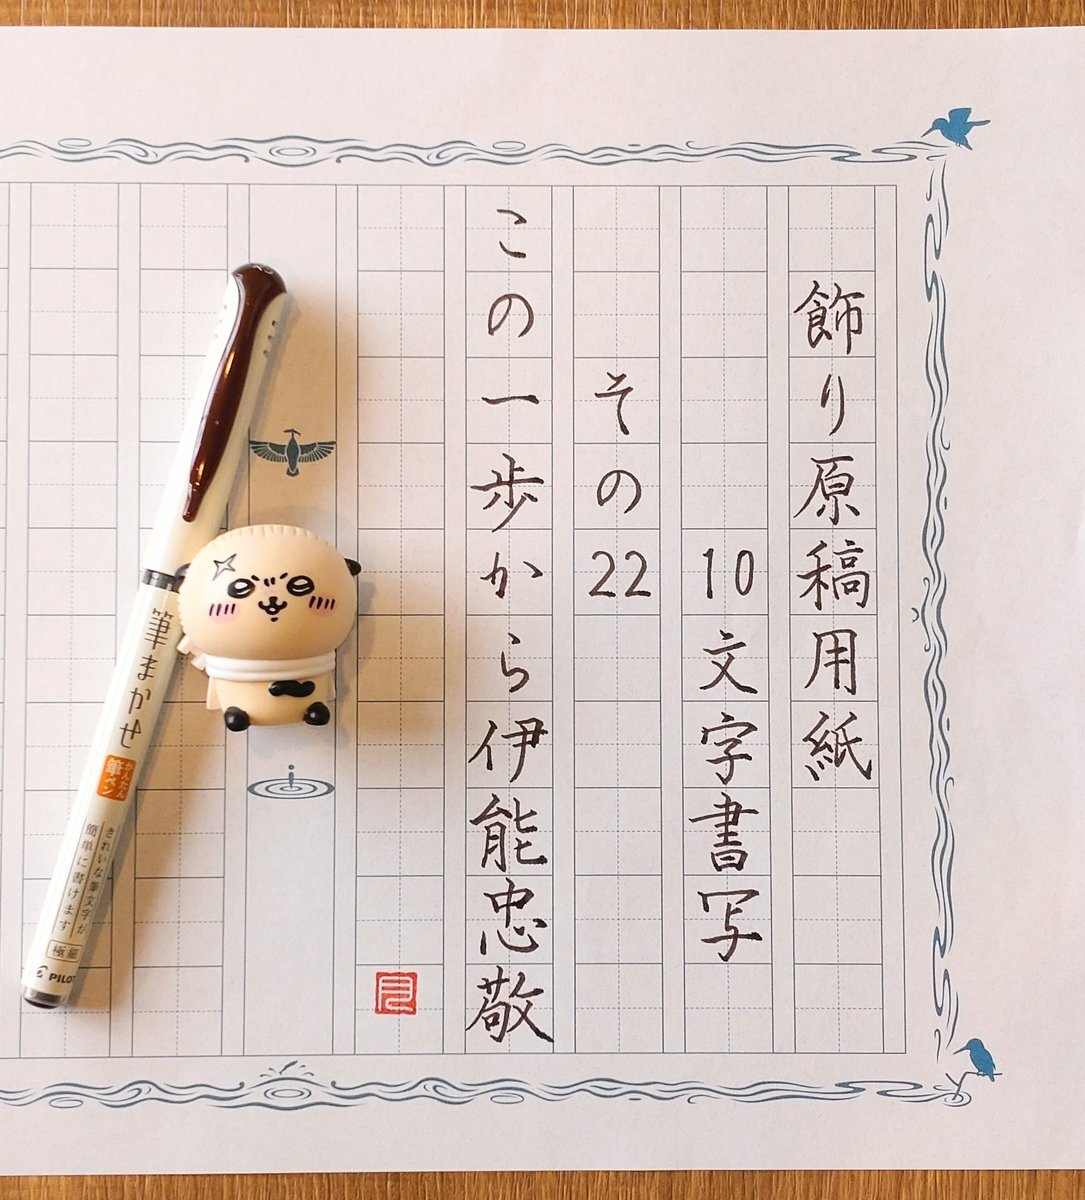 飾り原稿用紙
10文字書写
その22
この一歩から伊能忠敬
筆まかせ
かんたん
筆ペン
きれいな筆文字が
簡単に書けます
極細
PILOT